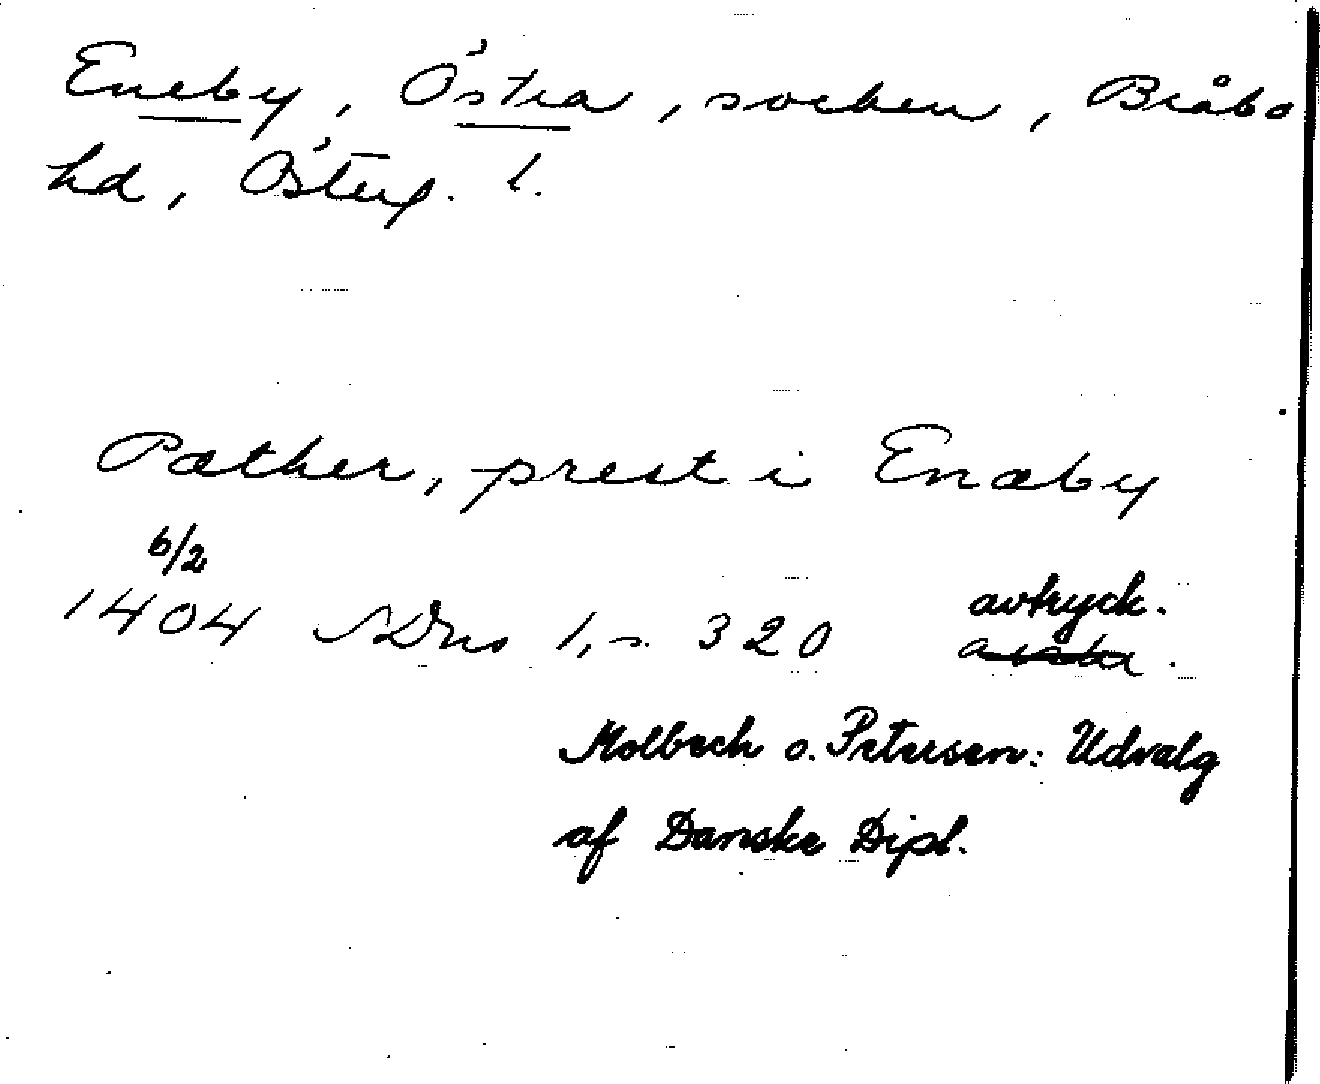 Eneby, Östra, socken, Bråbo
hd, Österg. l.
Pæther, prest i Enæby
6/2
1404 SDns 1, s. 320 avtryck.
Molbech o. Petersen: Udvalg
af Danske Dipl.